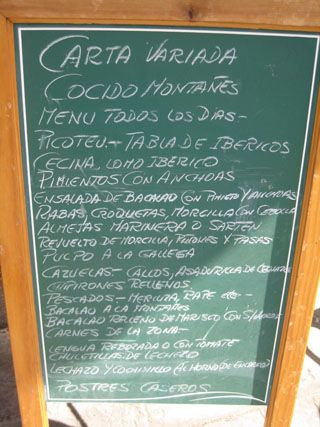 CARTA VARIADA
COCIDO MONTAÑES
MENU TODOS LOS DIAS-
PICOTEU- TABLA DE IBERICOS
CECINA, LOMO IBERICO
PIMIENTOS CON ANCHOAS
ENSALADA DE BACALAO CON PIMIENTO Y ANCHOAS
RABAS, CROQUETAS, MORCILLA CON CEBOLLA
ALMEJAS MARINERA O SARTEN
REVUELTO DE MORCILLA, PIÑONES Y PASAS
PULPO A LA GALLEGA
CAZUELAS- CALLOS, ASADURILLA DE
CHIPIRONES RELLENOS
PESCADOS- MERLUZA, RAPE etc-
BACALAO A LA MONTAÑES
BACALAO RELLENO DE MARISCO CON
CARNES DE LA ZONA-
LENGUA REBOZADA O CON TOMATE
CHULETILLAS DE LECHAZO
LECHAZO Y COCHINILLO (AL HORNO) (DE ENCARGO)
POSTRES CASEROS